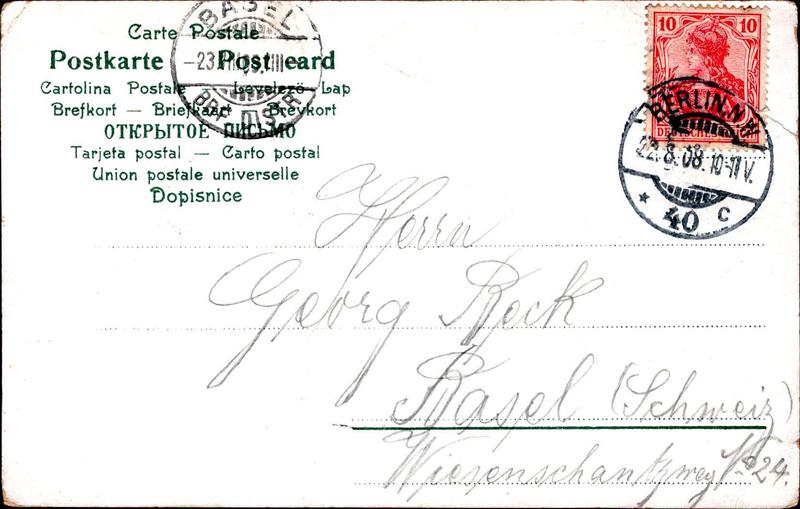 Carte Postale
Postkarte — Post card
Cartolina Postale — Levelező-Lap
Brefkort — Briefkaart — Brevkort
ОТКРЫТОЕ ПИСЬМО
Tarjeta postal — Carto postal
Union postale universelle
Dopisnice
BASEL
BRF. DISTR
10 10
DEUTSCHES REICH
BERLIN N.W.
22.8.08.10-11V.
* 40 c
Herrn
Georg Beck
Basel (Schweiz)
Wiesenschanzweg No 24.